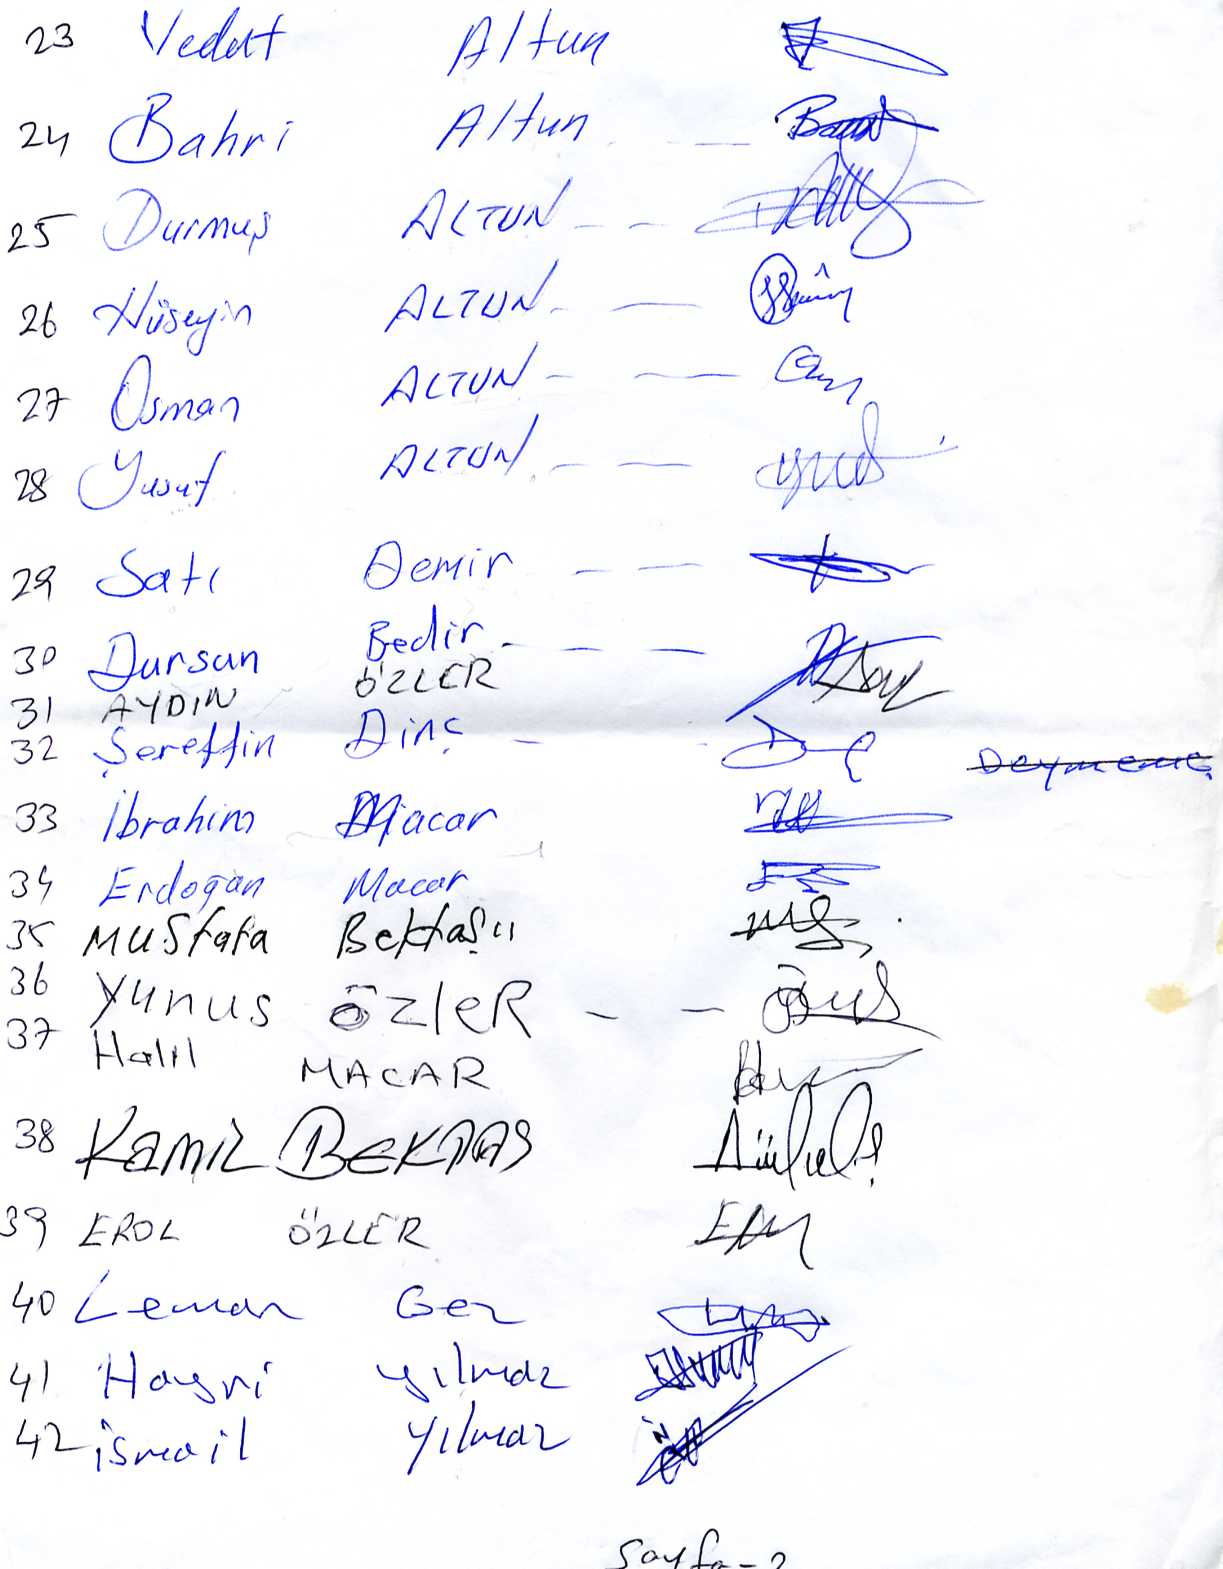 23 Vedat Altun
24 Bahri Altun
25 Durmuş ALTUN
26 Hüseyin ALTUN
27 Osman ALTUN
28 Yusuf ALTUN
29 Satı Demir
30 Dursun Bedir
31 AYDIN ÖZLER
32 Şereffin Dinç
33 İbrahim Macar
34 Erdoğan Macar
35 Mustafa Bektaşıı
36 Yunus ÖzleR
37 Halil MACAR
38 KAMİL BEKTAŞ
39 EROL ÖZLER
40 Leman Gez
41 Hayri yılmaz
42 ismail yılmaz
Sayfa-2